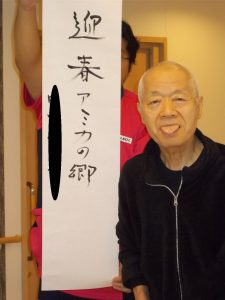 迎春アミカの郷